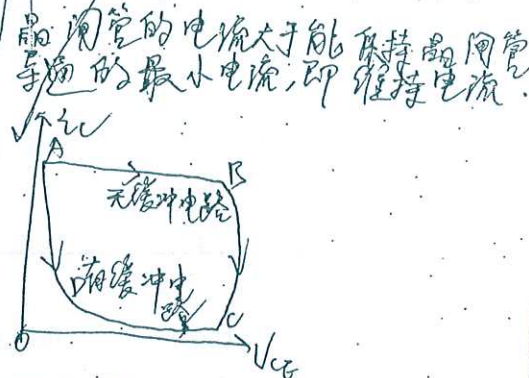 晶闸管的电流大于能保持晶闸管
导通的最小电流,即维持电流.
ic
A
B
无缓冲电路
D有缓冲电
路
C
O
VCE